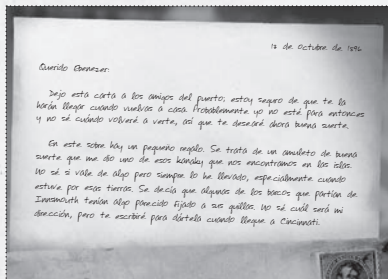 12 de octubre de 1896
Querido Ebenezer:
Dejo esta carta a los amigos del puerto; estoy seguro de que te la
harán llegar cuando vuelvas a casa. Probablemente yo no esté para entonces
y no sé cuándo volveré a verte, así que te desearé ahora buena suerte.
En este sobre hay un pequeño regalo. Se trata de un amuleto de buena
suerte que me dio uno de esos kanaky que nos encontramos en las islas.
No sé si vale de algo pero siempre lo he llevado, especialmente cuando
estuve por esas tierras. Se decía que algunos de los barcos que partían de
Innsmouth tenían algo parecido fijado a sus quillas. No sé cuál será mi
dirección, pero te escribiré para dártela cuando llegue a Cincinnati.